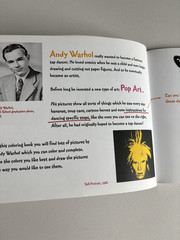 Andy Warhol really wanted to become a famous
tap dancer. He loved comics when he was a child and soon began
drawing and cutting out paper figures. And so he eventually
became an artist.
Before long he invented a new type of art: Pop Art...
His pictures show all sorts of things which he saw every day:
bananas, soup cans, cartoon heroes and even instructions for
dancing specific steps, like the ones you can see on the right.
After all, he had originally hoped to become a tap dancer!
Andy Warhol,
this coloring book you will find lots of pictures by
Andy Warhol which you can color and complete.
the colors you like best and draw the pictures
way you would like to see them.
Self-Portrait, 1986
Can you